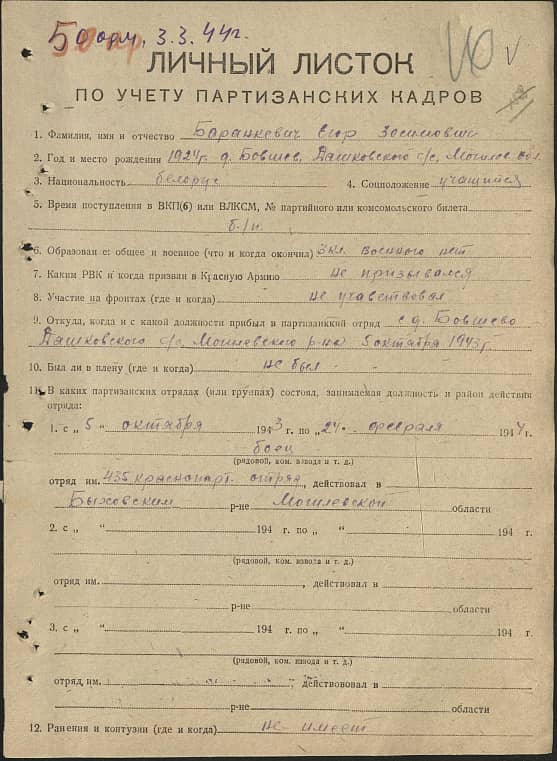 50 арм. 3.3.44г.
ЛИЧНЫЙ ЛИСТОК
ПО УЧЕТУ ПАРТИЗАНСКИХ КАДРОВ
1. Фамилия, имя и отчество Баранкевич Егор Зосимович
2. Год и место рождения 1924г. д. Бовшев, Дашковского с/с, Могилев. обл.
3. Национальность белорус 4. Соцположение учащийся
5. Время поступления в ВКП(б) или ВЛКСМ, № партийного или комсомольского билета
б/п.
6. Образован е: общее и военное (что и когда окончил) 3 кл. военного нет
7. Каким РВК и когда призван в Красную Армию не призывался
8. Участие на фронтах (где и когда) не учавствовал
9. Откуда, когда и с какой должности прибыл в партизанский отряд с д. Бовшево
Дашковского с/с, Могилевского р-на 5 октября 1943г.
10. Был ли в плену (где и когда) не был
11. В каких партизанских отрядах (или группах) состоял, занимаемая должность и район действия
отряда:
1. с „ 5 “ октября 1943 г. по „ 24 “ февраля 1944 г.
боец
(рядовой, ком. взвода и т. д.)
отряд им. 435 краснопарт. отряд, действовал в
Быховским р-не Могилевской области
2. с „ “ 194 г. по „ “ 194 г.
(рядовой, ком. взвода и т. д.)
отряд им. , действовал в
р-не области
3. с „ “ 194 г. по „ “ 194 г.
(рядовой, ком. взвода и т. д.)
отряд, им. , действововал в
р-не области
12. Ранения и контузии (где и когда) не имеет